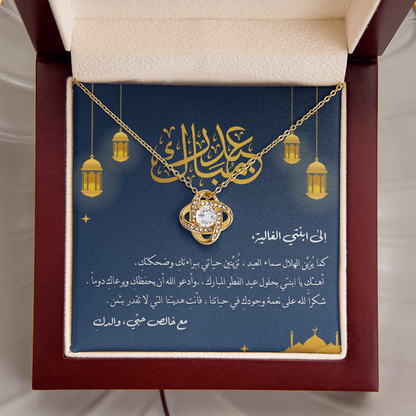 عيد مبارك
إلى ابنتي الغالية،
كما يُزيّن الهلال سماء العيد ، تُزيّنين حياتي ببراءتك وضحكتك.
أهنئكِ يا ابنتي بحلول عيد الفطر المبارك، ..وأدعو الله أن يحفظك ويرعاكِ دوماً .
شكراً لله على نعمة وجودكِ في حياتنا ، فأنتِ هديتنا التي لا تُقدر بثمن.
مع خالص حبّي ، والدكِ